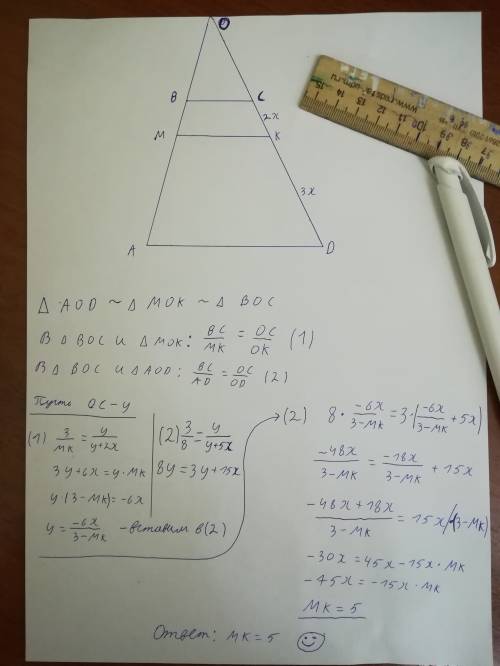 O
B
C
2x
M
K
3x
A
D
Δ AOD ~ Δ MOK ~ Δ BOC
В Δ BOC и Δ MOK: BC/MK = OC/OK (1)
В Δ BOC и Δ AOD: BC/AD = OC/OD (2)
Пусть OC - y
(1) 3/MK = y/(y+2x)
3y+6x = y·MK
y·(3-MK) = -6x
y = -6x/(3-MK) - вставим в (2)
(2) 3/8 = y/(y+5x)
8y = 3y+15x
(2) 8·(-6x)/(3-MK) = 3·(-6x/(3-MK) + 5x)
-48x/(3-MK) = -18x/(3-MK) + 15x
(-48x+18x)/(3-MK) = 15x /·(3-MK)
-30x = 45x - 15x·MK
-45x = -15x·MK
MK = 5
Ответ: MK = 5